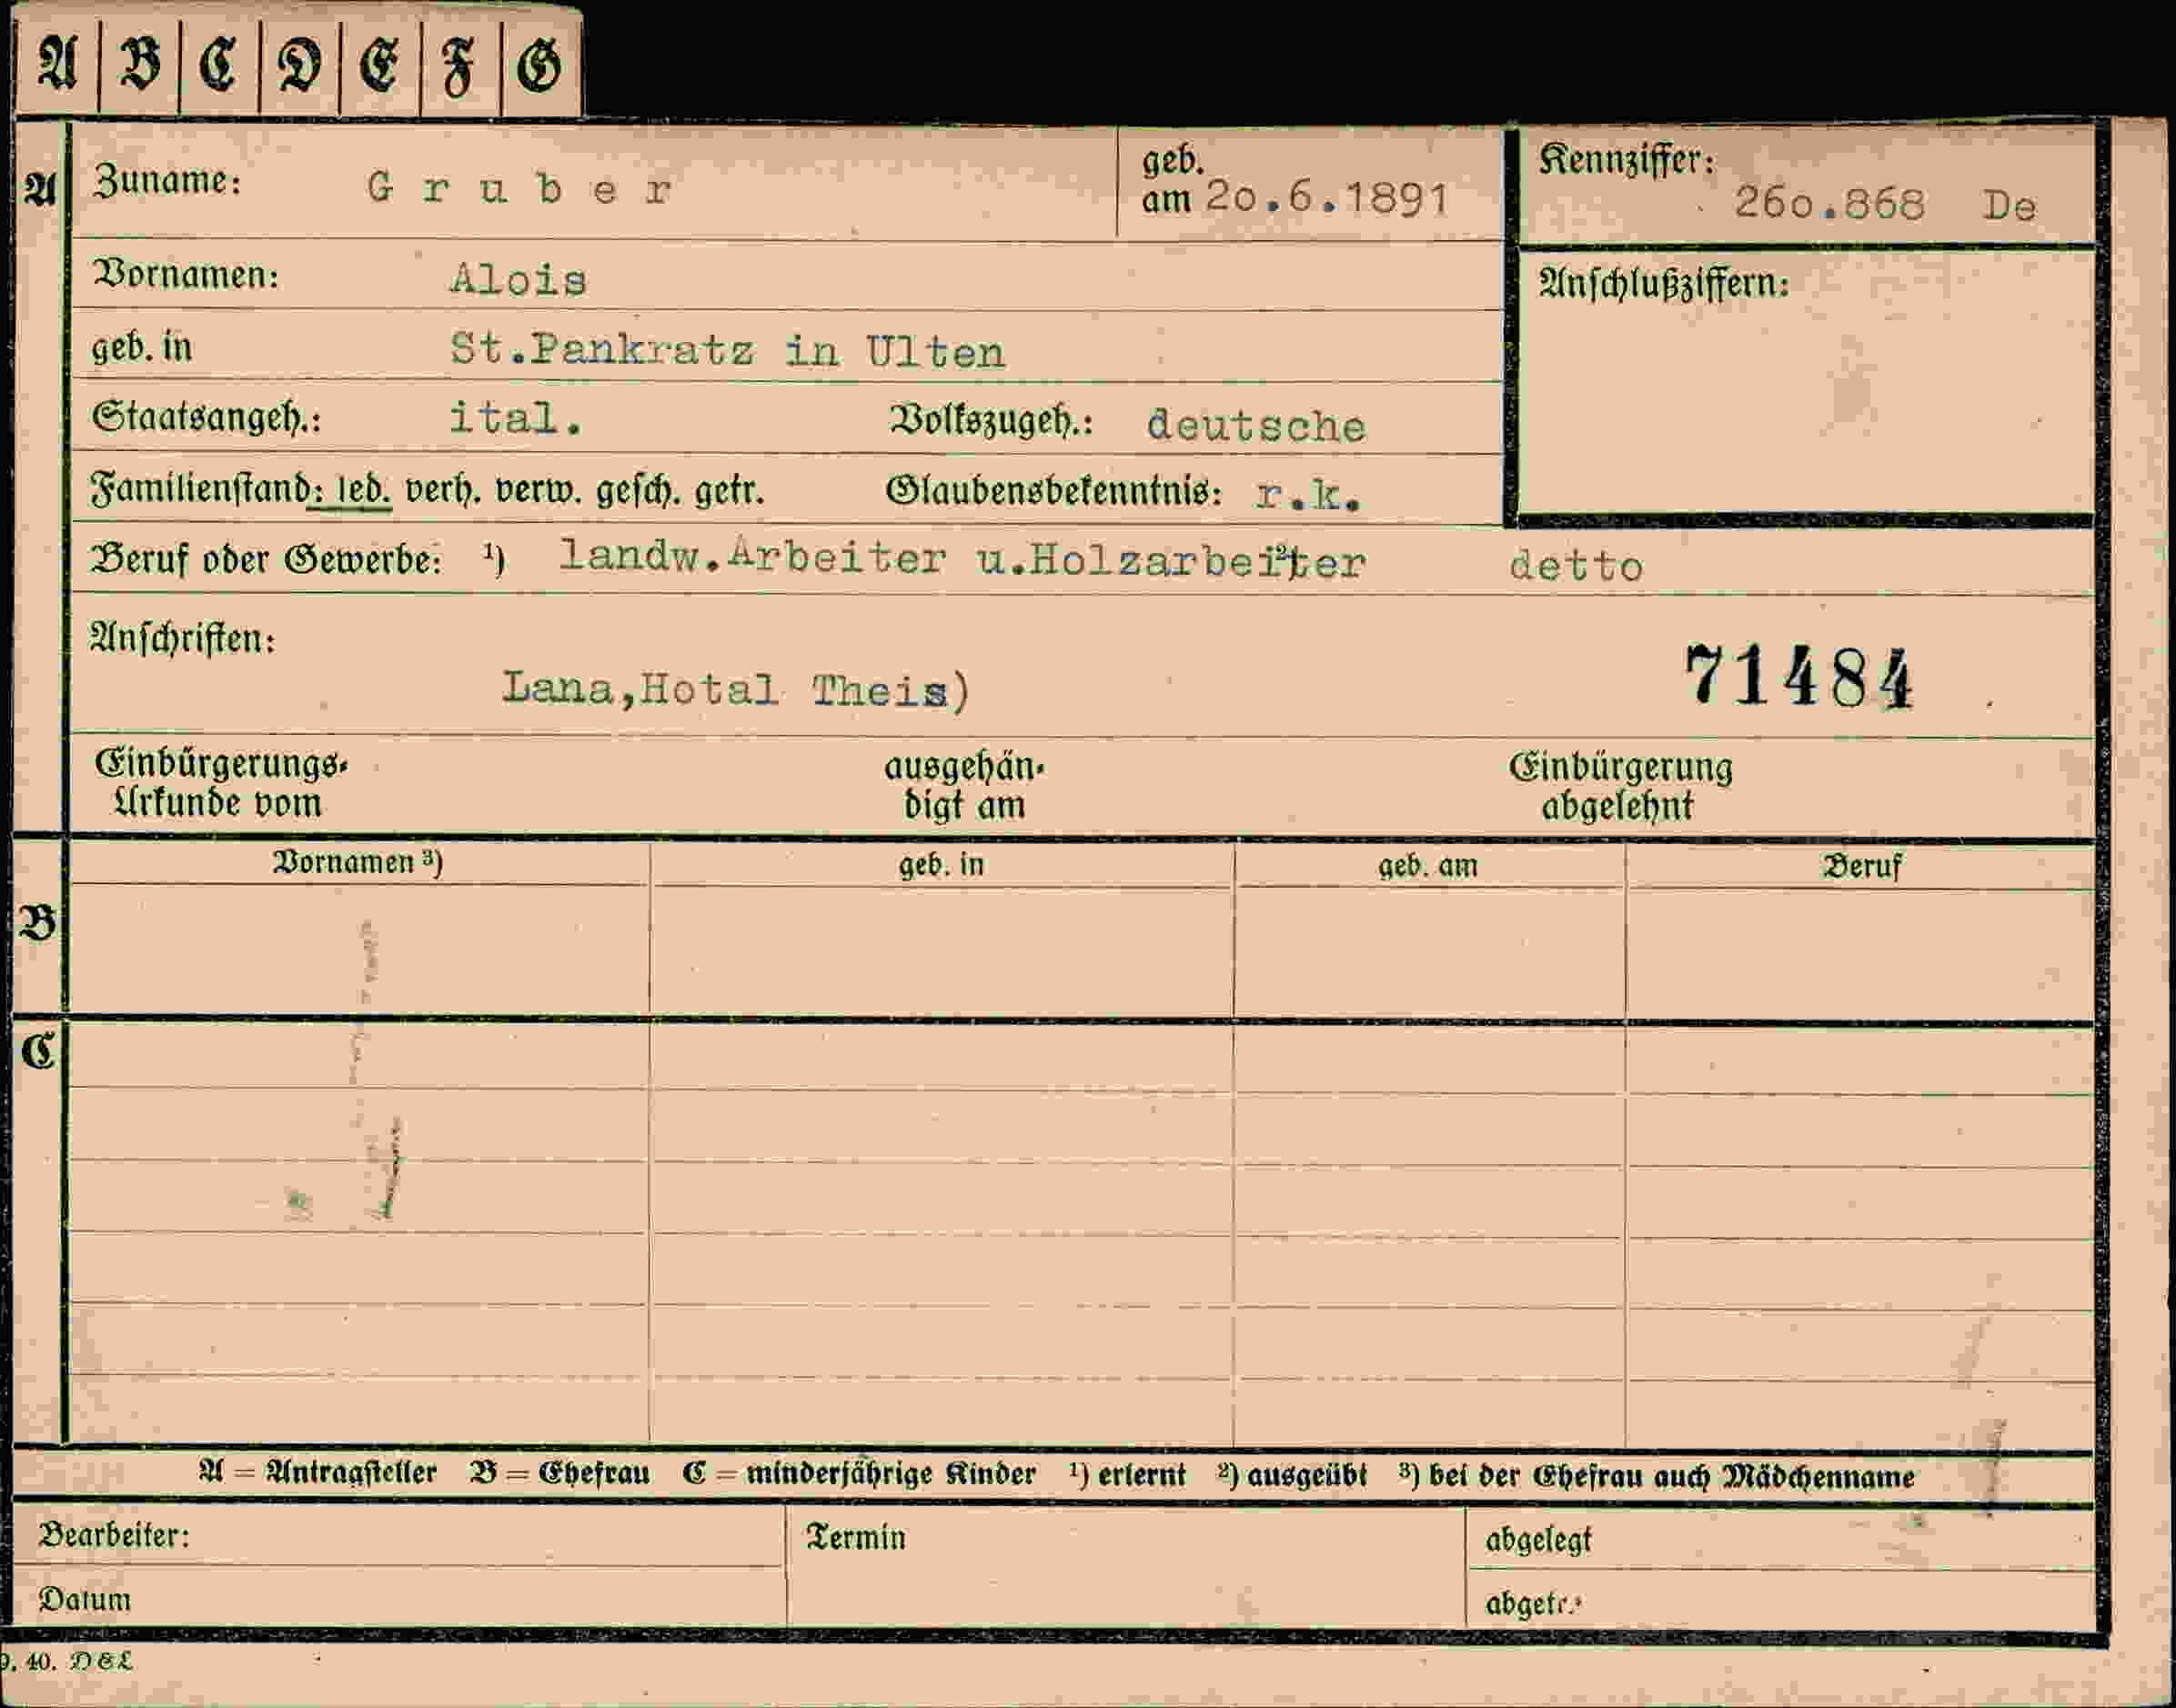 A B C D E F G
A Zuname: Gruber geb. am 20.6.1891 Kennziffer: 260.868 De
Vornamen: Alois Anschlußziffern:
geb. in St.Pankratz in Ulten
Staatsangeh.: ital. Volkszugeh.: deutsche
Familienstand: led. verh. verw. gesch. getr. Glaubensbekenntnis: r.k.
Beruf oder Gewerbe: ¹) landw.Arbeiter u.Holzarbeiter ²) detto
Anschriften:
Lana,Hotal Theis) 71484
Einbürgerungs- ausgehän- Einbürgerung
Urkunde vom digt am abgelehnt
Vornamen ³) geb. in geb. am Beruf
B
C
A = Antragsteller B = Ehefrau C = minderjährige Kinder ¹) erlernt ²) ausgeübt ³) bei der Ehefrau auch Mädchenname
Bearbeiter: Termin abgelegt
Datum abgetr.
9. 40. DEL